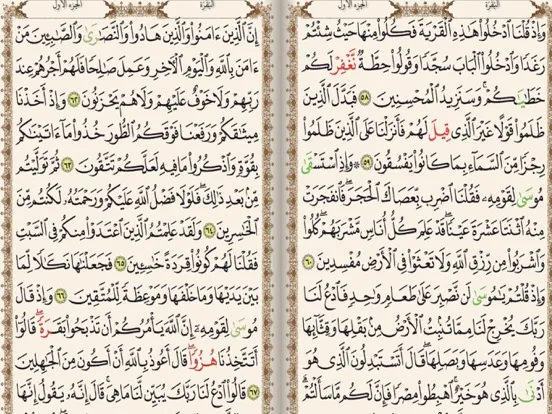 البقرة الجزء الأول
وَإِذْ قُلْنَا ٱدْخُلُوا۟ هَٰذِهِ ٱلْقَرْيَةَ فَكُلُوا۟ مِنْهَا حَيْثُ شِئْتُمْ
رَغَدًا وَٱدْخُلُوا۟ ٱلْبَابَ سُجَّدًا وَقُولُوا۟ حِطَّةٌ نَّغْفِرْ لَكُمْ
خَطَٰيَٰكُمْ ۚ وَسَنَزِيدُ ٱلْمُحْسِنِينَ ٥٨ فَبَدَّلَ ٱلَّذِينَ
ظَلَمُوا۟ قَوْلًا غَيْرَ ٱلَّذِى قِيلَ لَهُمْ فَأَنزَلْنَا عَلَى ٱلَّذِينَ ظَلَمُوا۟
رِجْزًا مِّنَ ٱلسَّمَآءِ بِمَا كَانُوا۟ يَفْسُقُونَ ٥٩ ۞ وَإِذِ ٱسْتَسْقَىٰ
مُوسَىٰ لِقَوْمِهِۦ فَقُلْنَا ٱضْرِب بِّعَصَاكَ ٱلْحَجَرَ ۖ فَٱنفَجَرَتْ
مِنْهُ ٱثْنَتَا عَشْرَةَ عَيْنًا ۖ قَدْ عَلِمَ كُلُّ أُنَاسٍ مَّشْرَبَهُمْ ۖ كُلُوا۟
وَٱشْرَبُوا۟ مِن رِّزْقِ ٱللَّهِ وَلَا تَعْثَوْا۟ فِى ٱلْأَرْضِ مُفْسِدِينَ ٦٠
وَإِذْ قُلْتُمْ يَٰمُوسَىٰ لَن نَّصْبِرَ عَلَىٰ طَعَامٍ وَٰحِدٍ فَٱدْعُ لَنَا
رَبَّكَ يُخْرِجْ لَنَا مِمَّا تُنۢبِتُ ٱلْأَرْضُ مِنۢ بَقْلِهَا وَقِثَّآئِهَا
وَفُومِهَا وَعَدَسِهَا وَبَصَلِهَا ۖ قَالَ أَتَسْتَبْدِلُونَ ٱلَّذِى هُوَ
أَدْنَىٰ بِٱلَّذِى هُوَ خَيْرٌ ۚ ٱهْبِطُوا۟ مِصْرًا فَإِنَّ لَكُم مَّا سَأَلْتُمْ ۗ
البقرة الجزء الأول
إِنَّ ٱلَّذِينَ ءَامَنُوا۟ وَٱلَّذِينَ هَادُوا۟ وَٱلنَّصَٰرَىٰ وَٱلصَّٰبِـِٔينَ مَنْ
ءَامَنَ بِٱللَّهِ وَٱلْيَوْمِ ٱلْءَاخِرِ وَعَمِلَ صَٰلِحًا فَلَهُمْ أَجْرُهُمْ عِندَ
رَبِّهِمْ وَلَا خَوْفٌ عَلَيْهِمْ وَلَا هُمْ يَحْزَنُونَ ٦٢ وَإِذْ أَخَذْنَا
مِيثَٰقَكُمْ وَرَفَعْنَا فَوْقَكُمُ ٱلطُّورَ خُذُوا۟ مَآ ءَاتَيْنَٰكُم
بِقُوَّةٍ وَٱذْكُرُوا۟ مَا فِيهِ لَعَلَّكُمْ تَتَّقُونَ ٦٣ ثُمَّ تَوَلَّيْتُم
مِّنۢ بَعْدِ ذَٰلِكَ ۖ فَلَوْلَا فَضْلُ ٱللَّهِ عَلَيْكُمْ وَرَحْمَتُهُۥ لَكُنتُم مِّنَ
ٱلْخَٰسِرِينَ ٦٤ وَلَقَدْ عَلِمْتُمُ ٱلَّذِينَ ٱعْتَدَوْا۟ مِنكُمْ فِى ٱلسَّبْتِ
فَقُلْنَا لَهُمْ كُونُوا۟ قِرَدَةً خَٰسِـِٔينَ ٦٥ فَجَعَلْنَٰهَا نَكَٰلًا لِّمَا
بَيْنَ يَدَيْهَا وَمَا خَلْفَهَا وَمَوْعِظَةً لِّلْمُتَّقِينَ ٦٦ وَإِذْ قَالَ
مُوسَىٰ لِقَوْمِهِۦٓ إِنَّ ٱللَّهَ يَأْمُرُكُمْ أَن تَذْبَحُوا۟ بَقَرَةً ۖ قَالُوٓا۟
أَتَتَّخِذُنَا هُزُؤًا ۖ قَالَ أَعُوذُ بِٱللَّهِ أَنْ أَكُونَ مِنَ ٱلْجَٰهِلِينَ
٦٧ قَالُوا۟ ٱدْعُ لَنَا رَبَّكَ يُبَيِّن لَّنَا مَا هِىَ ۚ قَالَ إِنَّهُۥ يَقُولُ إِنَّهَا